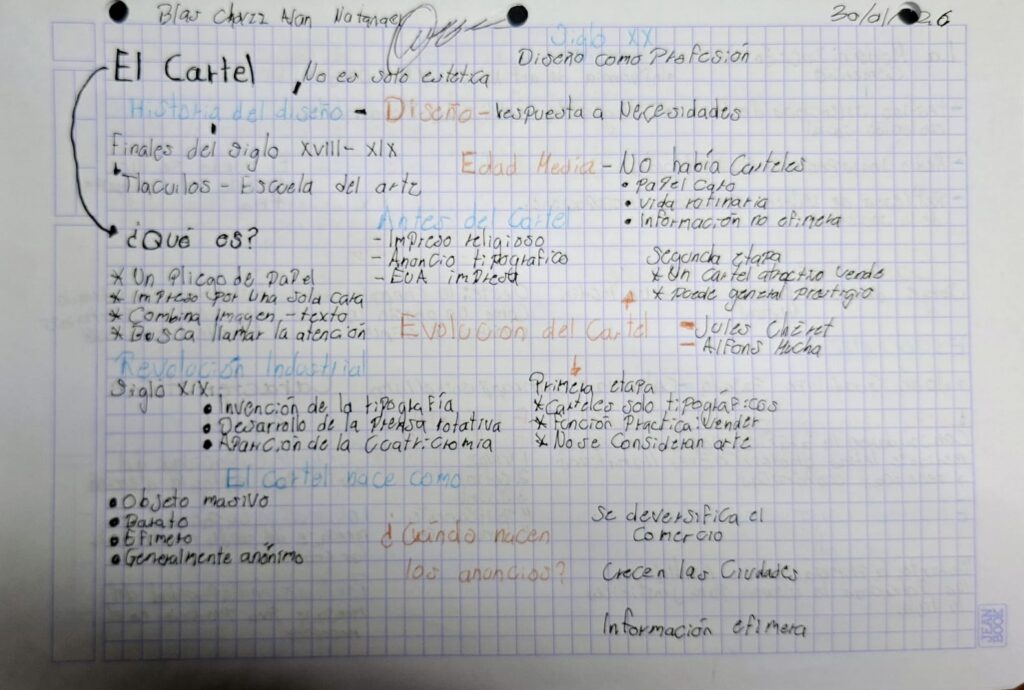 Blas Chvzz Alan Natanael
30/01/26
Siglo XX
Diseño como Profesión
El Cartel
No es solo estética
Historia del diseño - Diseño - respuesta a Necesidades
Finales del siglo XVIII - XIX
Tlacuilos - Escuela del arte
Edad Media - No había Carteles
• Papel caro
• vida rutinaria
• Información no efimera
Antes del Cartel
- Impreso religioso
- Anuncio tipográfico
- EUA impresa
¿Qué es?
* Un Pliego de papel
* Impreso por una sola cara
* Combina Imagen - texto
* Busca llamar la atención
Segunda etapa
* Un Cartel atractivo vende
* puede general prestigio
Evolución del Cartel
- Jules Chéret
- Alfons Mucha
Revolución Industrial
Siglo XIX:
• Invención de la tipografía
• Desarrollo de la prensa rotativa
• Aparición de la Cuatricromia
Primera etapa
* Carteles solo tipográficos
* Función Practica: vender
* No se Consideran arte
El Cartel nace como
• Objeto masivo
• Barato
• Efimero
• Generalmente anónimo
¿Cuándo nacen
los anuncios?
Se deversifica el
Comercio
Crecen las Ciudades
Información efimera
JEAN
BOOK